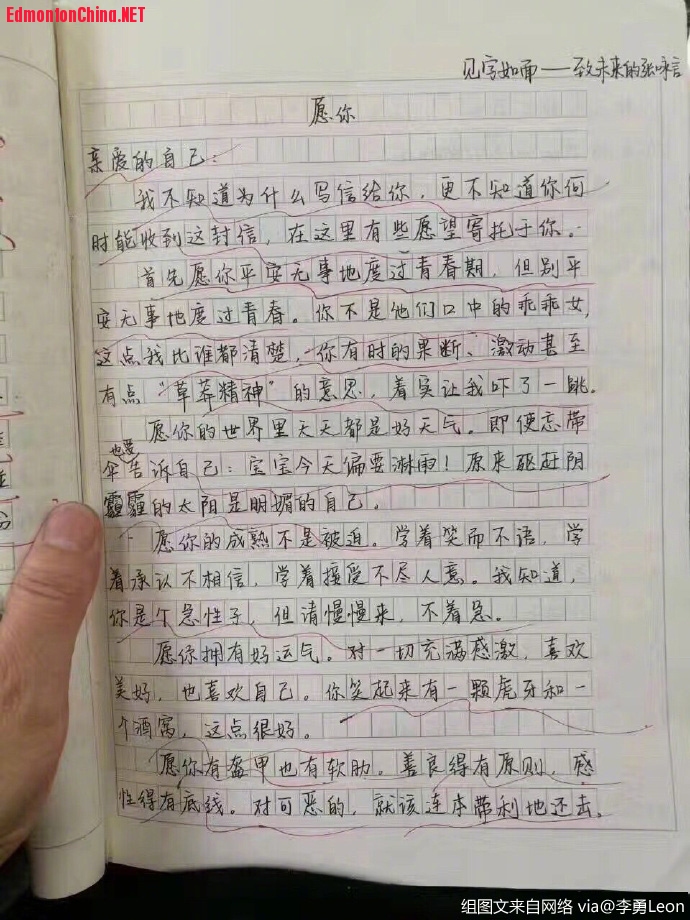 EdmontonChina.NET
见字如面——致未来的张咏言
愿你
亲爱的自己：
我不知道为什么写信给你，更不知道你何
时能收到这封信，在这里有些愿望寄托于你。
首先愿你平安无事地度过青春期，但别平
安无事地度过青春。你不是他们口中的乖乖女，
这点我比谁都清楚，你有时的果断、激动甚至
有点“草莽精神”的意思，着实让我吓了一跳。
愿你的世界里天天都是好天气。即便忘带
伞也要告诉自己：宝宝今天偏要淋雨！原来驱赶阴
霾的太阳是明媚的自己。
愿你的成熟不是被迫。学着笑而不语，学
着承认不相信，学着接受不尽人意。我知道，
你是个急性子，但请慢慢来，不着急。
愿你拥有好运气。对一切充满感激，喜欢
美好，也喜欢自己。你笑起来有一颗虎牙和一
个酒窝，这点很好。
愿你有盔甲也有软肋。善良得有原则，感
性得有底线。对可恶的，就该连本带利地还击。
组图文来自网络 via@李勇Leon